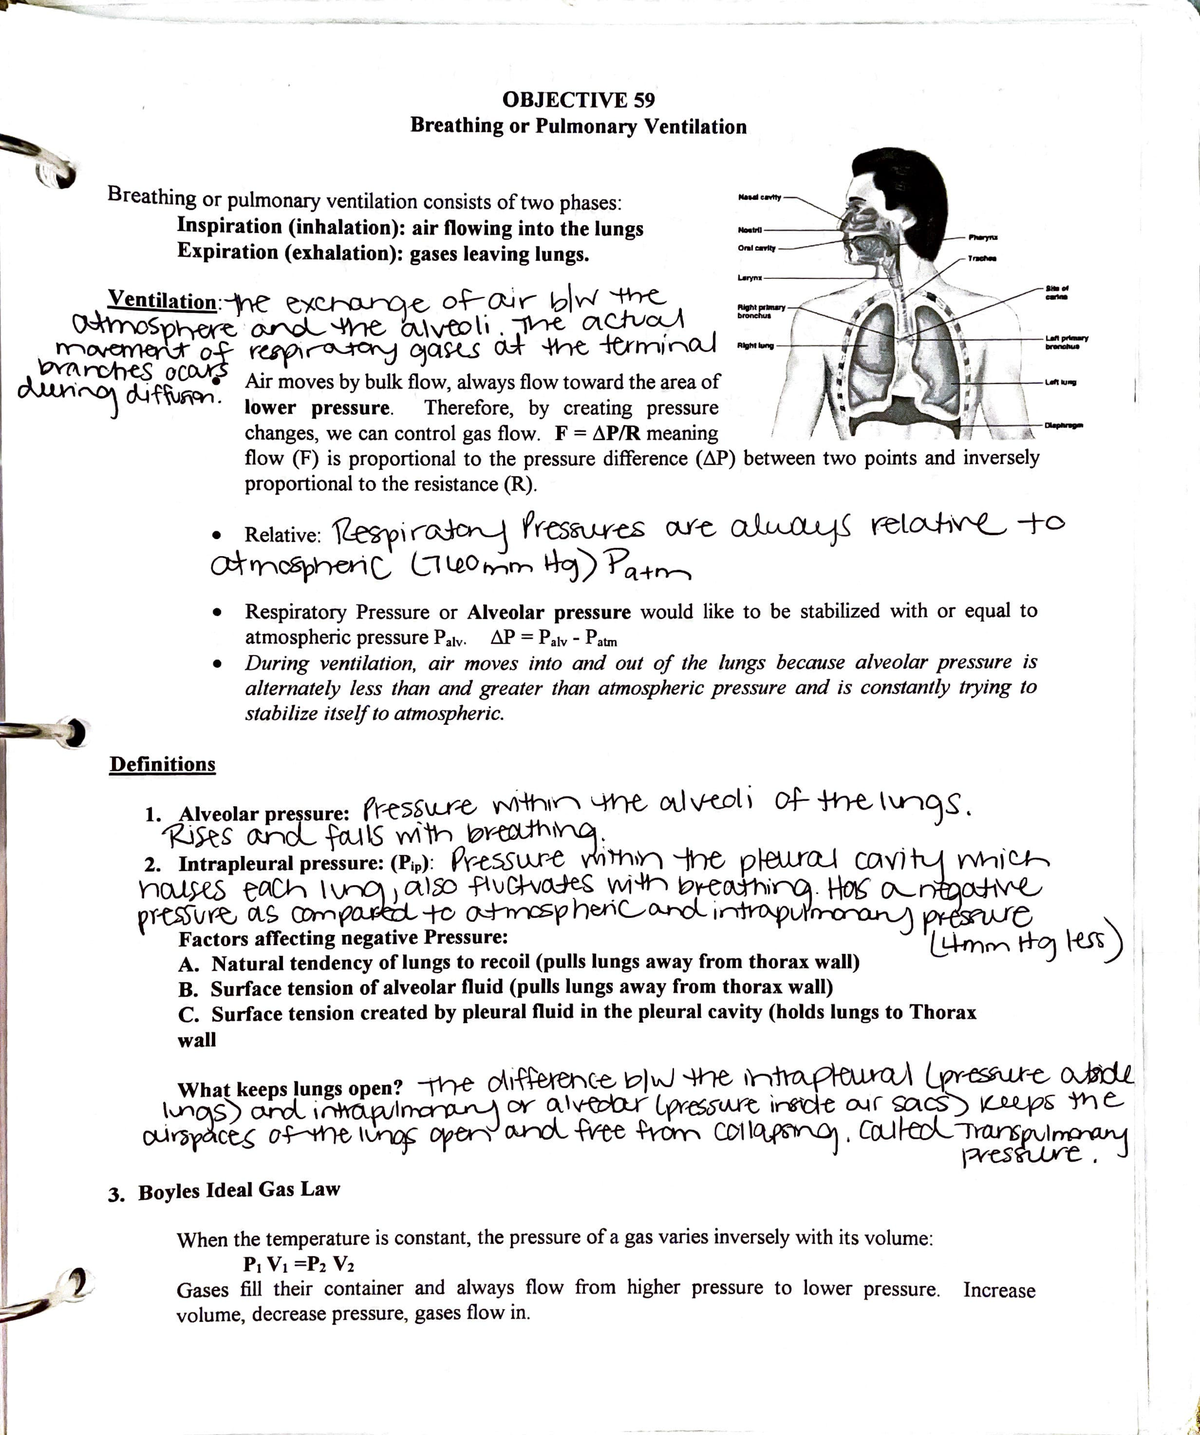 OBJECTIVE 59
Breathing or Pulmonary Ventilation
Breathing or pulmonary ventilation consists of two phases:
Inspiration (inhalation): air flowing into the lungs
Expiration (exhalation): gases leaving lungs.
Nasal cavity
Nostril
Oral cavity
Larynx
Right primary
bronchus
Right lung
Pharynx
Trachea
Site of
carina
Left primary
bronchus
Left lung
Diaphragm
Ventilation: the exchange of air b/w the
atmosphere and the alveoli. The actual
movement of respiratory gases at the terminal
branches ocars
during diffusion.
• Air moves by bulk flow, always flow toward the area of
lower pressure. Therefore, by creating pressure
changes, we can control gas flow. F = ΔP/R meaning
flow (F) is proportional to the pressure difference (ΔP) between two points and inversely
proportional to the resistance (R).
• Relative: Respiratory Pressures are always relative to
atmospheric (760mm Hg) Patm
• Respiratory Pressure or Alveolar pressure would like to be stabilized with or equal to
atmospheric pressure Palv. ΔP = Palv - Patm
• During ventilation, air moves into and out of the lungs because alveolar pressure is
alternately less than and greater than atmospheric pressure and is constantly trying to
stabilize itself to atmospheric.
Definitions
1. Alveolar pressure: Pressure within the alveoli of the lungs.
Rises and falls with breathing.
2. Intrapleural pressure: (Pip): Pressure within the pleural cavity which
houses each lung, also fluctuates with breathing. Has a negative
pressure as compared to atmospheric and intrapulmonary pressure
(4mm Hg less)
Factors affecting negative Pressure:
A. Natural tendency of lungs to recoil (pulls lungs away from thorax wall)
B. Surface tension of alveolar fluid (pulls lungs away from thorax wall)
C. Surface tension created by pleural fluid in the pleural cavity (holds lungs to Thorax
wall
What keeps lungs open? The difference b/w the intrapleural (pressure outside
lungs) and intrapulmonary or alveolar (pressure inside air sacs) keeps the
airspaces of the lungs open and free from collapsing. Called Transpulmonary
pressure.
3. Boyles Ideal Gas Law
When the temperature is constant, the pressure of a gas varies inversely with its volume:
P1 V1 =P2 V2
Gases fill their container and always flow from higher pressure to lower pressure. Increase
volume, decrease pressure, gases flow in.